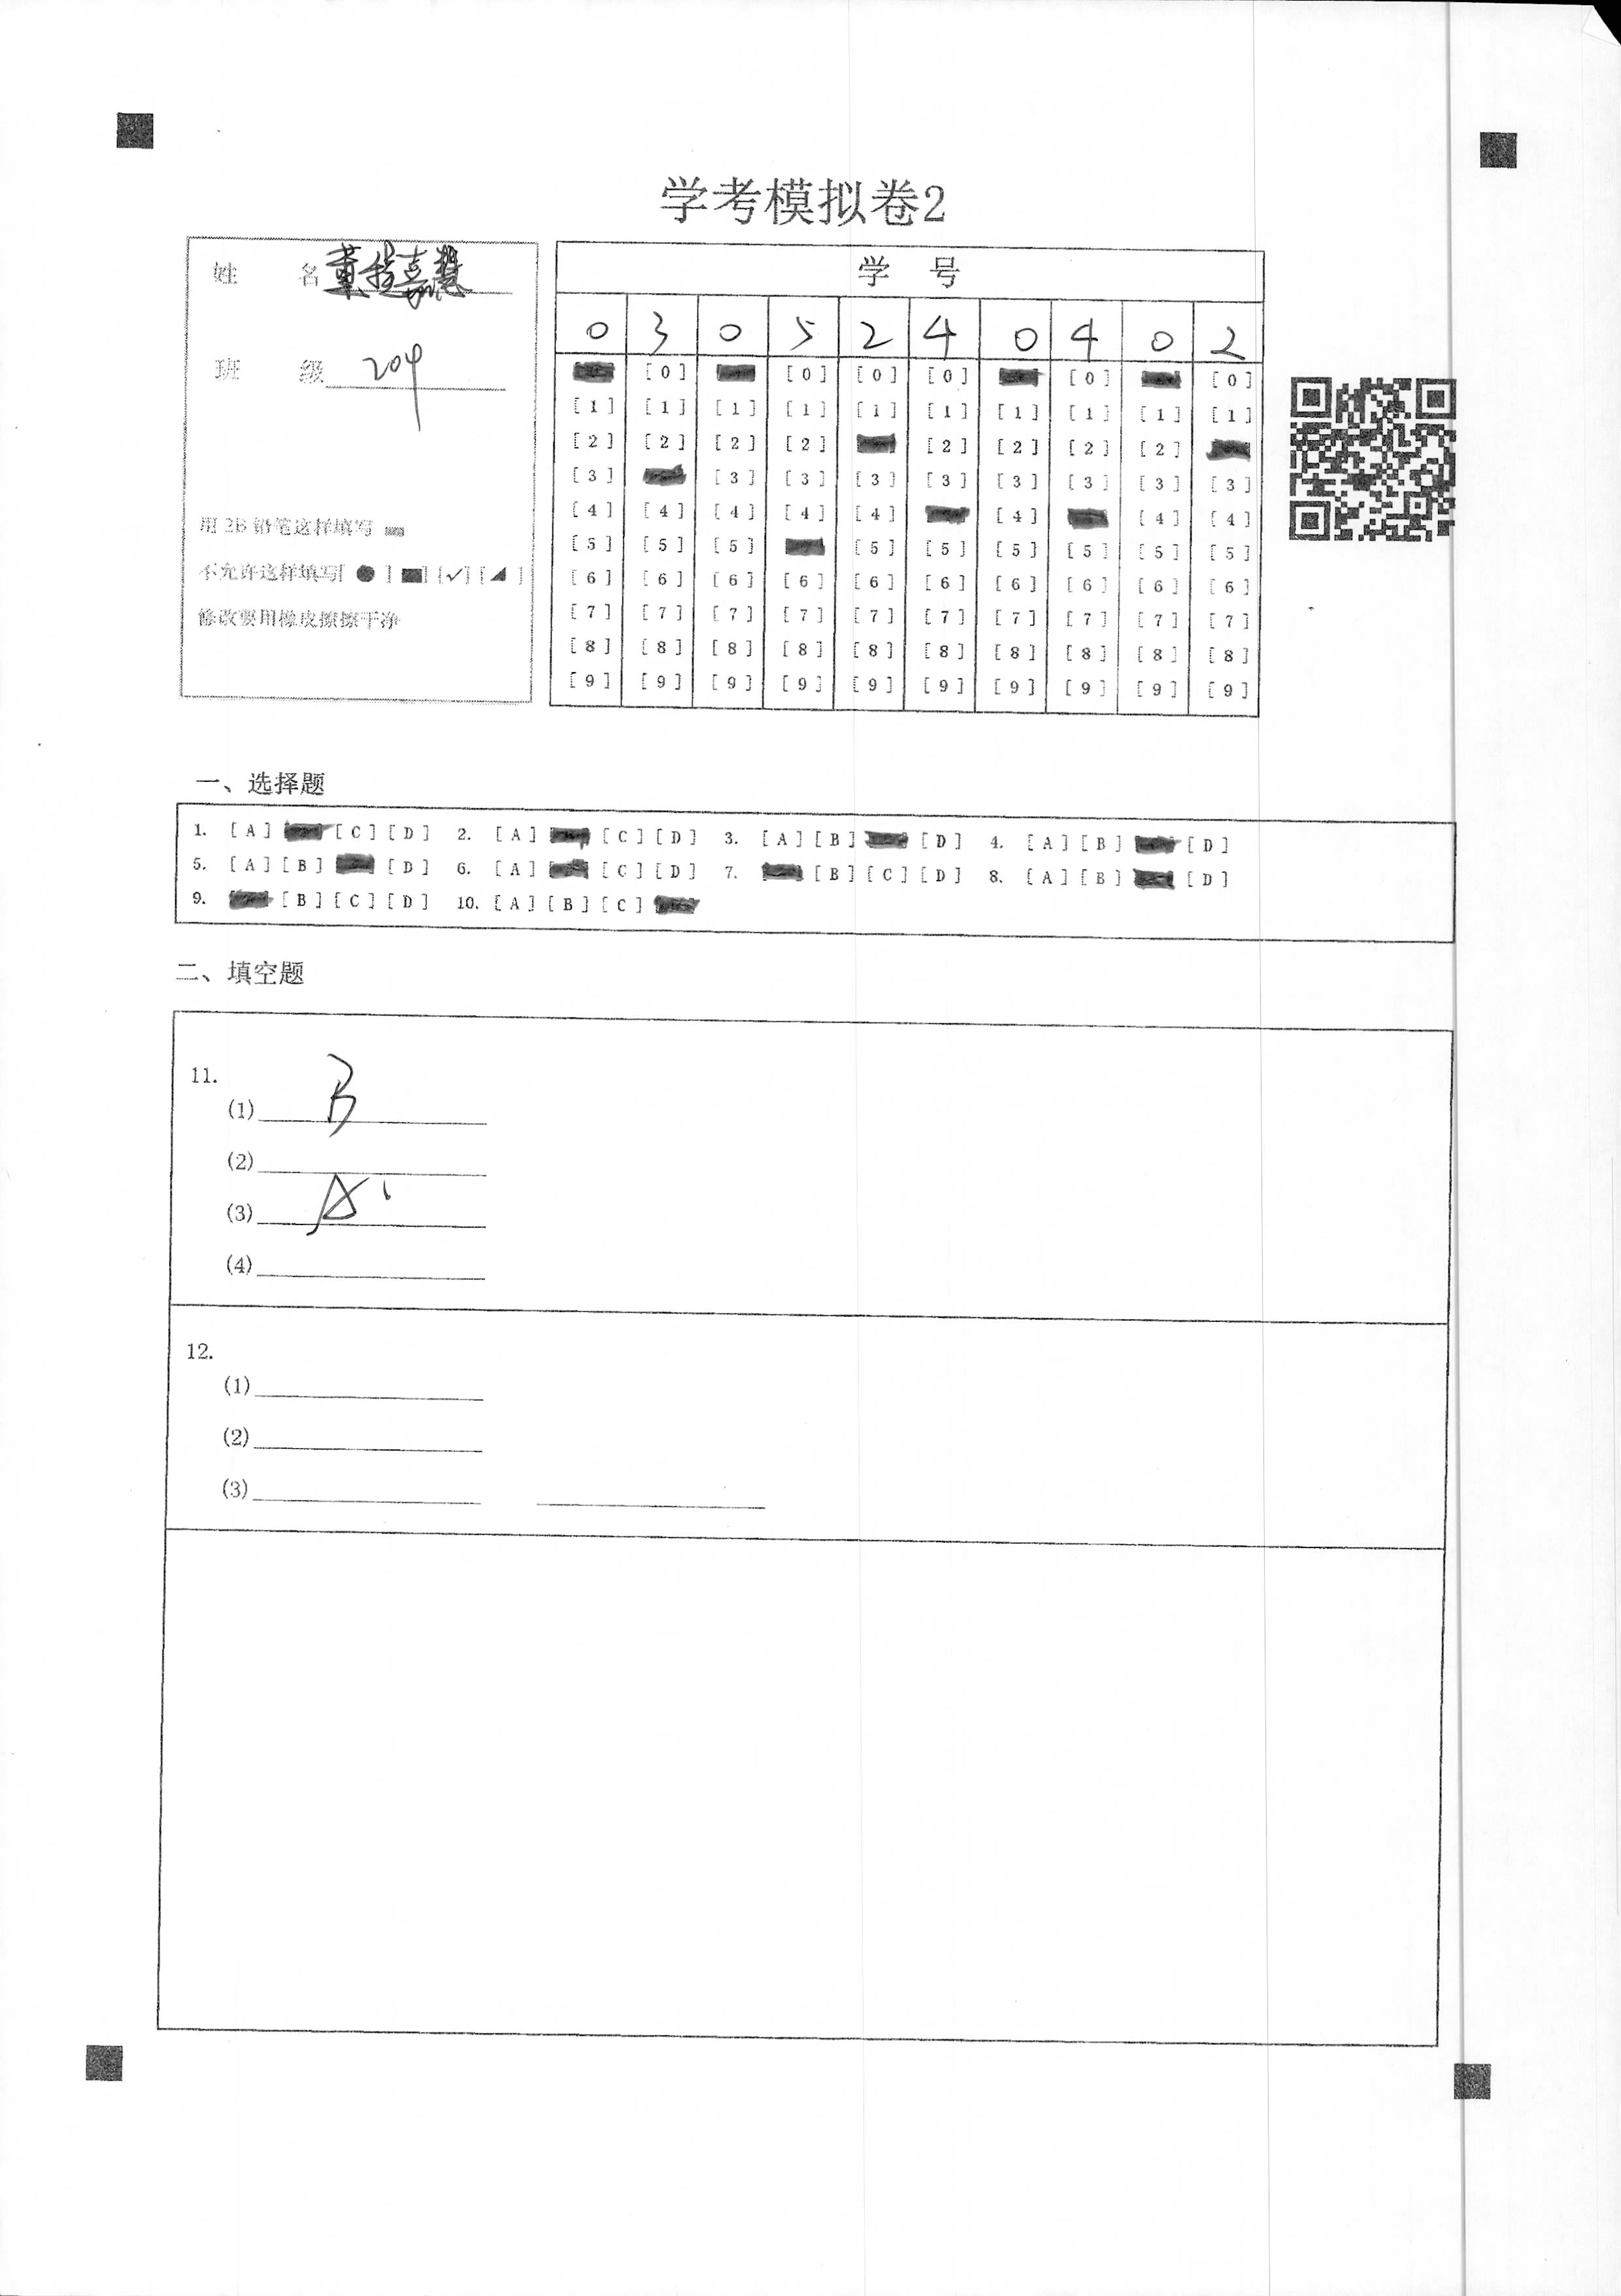 学考模拟卷2
姓 名
班 级 204
用 2B 铅笔这样填写
不允许这样填写[ ● ] ■] [✓] [◢ ]
修改要用橡皮擦擦干净
学 号
0 3 0 5 2 4 0 4 0 2
[0] [0] [0] [0] [0] [0]
[1] [1] [1] [1] [1] [1] [1] [1] [1] [1]
[2] [2] [2] [2] [2] [2] [2] [2]
[3] [3] [3] [3] [3] [3] [3] [3] [3]
[4] [4] [4] [4] [4] [4] [4] [4]
[5] [5] [5] [5] [5] [5] [5] [5] [5]
[6] [6] [6] [6] [6] [6] [6] [6] [6] [6]
[7] [7] [7] [7] [7] [7] [7] [7] [7] [7]
[8] [8] [8] [8] [8] [8] [8] [8] [8] [8]
[9] [9] [9] [9] [9] [9] [9] [9] [9] [9]
一、选择题
1. [A] [C] [D] 2. [A] [C] [D] 3. [A] [B] [D] 4. [A] [B] [D]
5. [A] [B] [D] 6. [A] [C] [D] 7. [B] [C] [D] 8. [A] [B] [D]
9. [B] [C] [D] 10. [A] [B] [C]
二、填空题
11.
(1) B
(2)
(3) A
(4)
12.
(1)
(2)
(3)